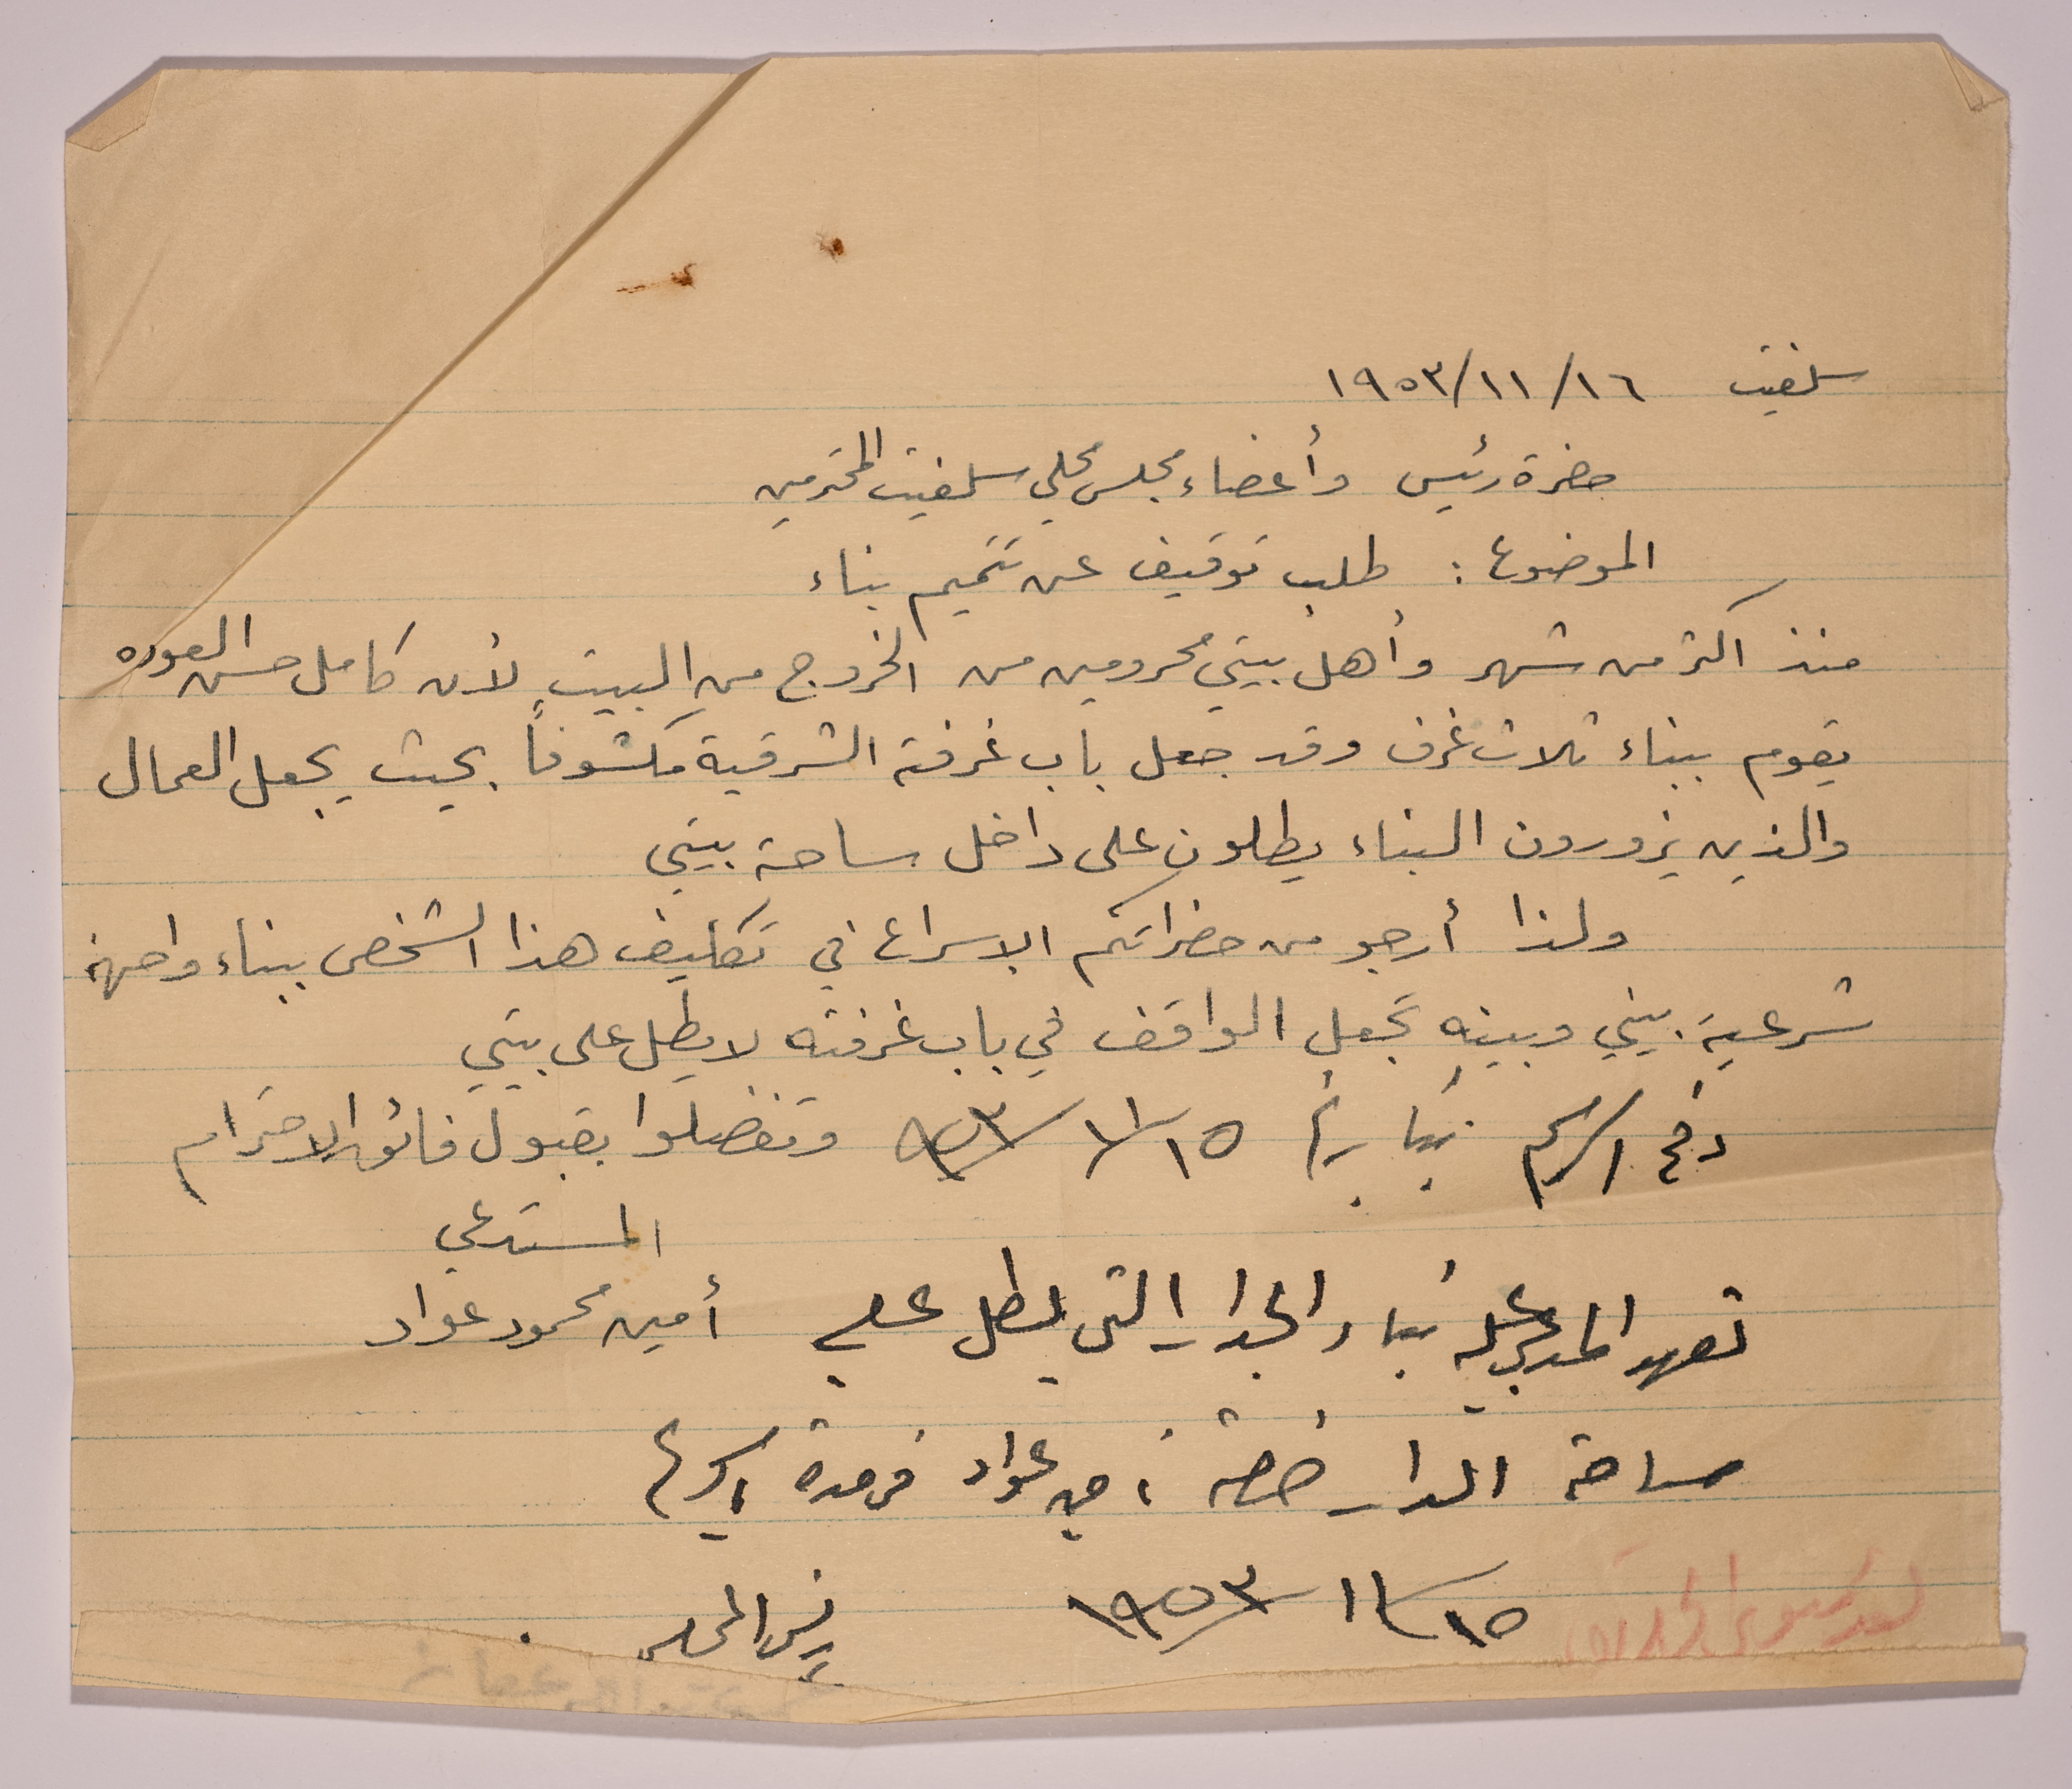 سلفيت ١٦/١١/١٩٥٣
حضرة رئيس وأعضاء مجلس محلي سلفيت المحترمين
الموضوع : طلب توقيف عن تتميم بناء
منذ اكثر من شهر وأهل بيتي محرومين من الخروج من البيت لأن كامل حسن العوره
يقوم ببناء ثلاث غرف وقد جعل باب غرفته الشرقية مكشوفاً بحيث يجعل العمال
والذين يزورون البناء يطلون على داخل ساحة بيتي
ولذا أرجو من حضراتكم الاسراع في تكليف هذا الشخص ببناء واجهة
شرعية بيني وبينه تجعل الواقف في باب غرفته لا يطل على بيتي
دفع الرسم بتاريخ ١٥/١١/٩٥٣ وتفضلوا بقبول فائق الاحترام
المستدعي
تعهد المدعى عليه بناء الجدار التي يطل على
أمين محمود عواد
ساحة الدار عواد
١٥/١١/١٩٥٣ رئيس المجلس